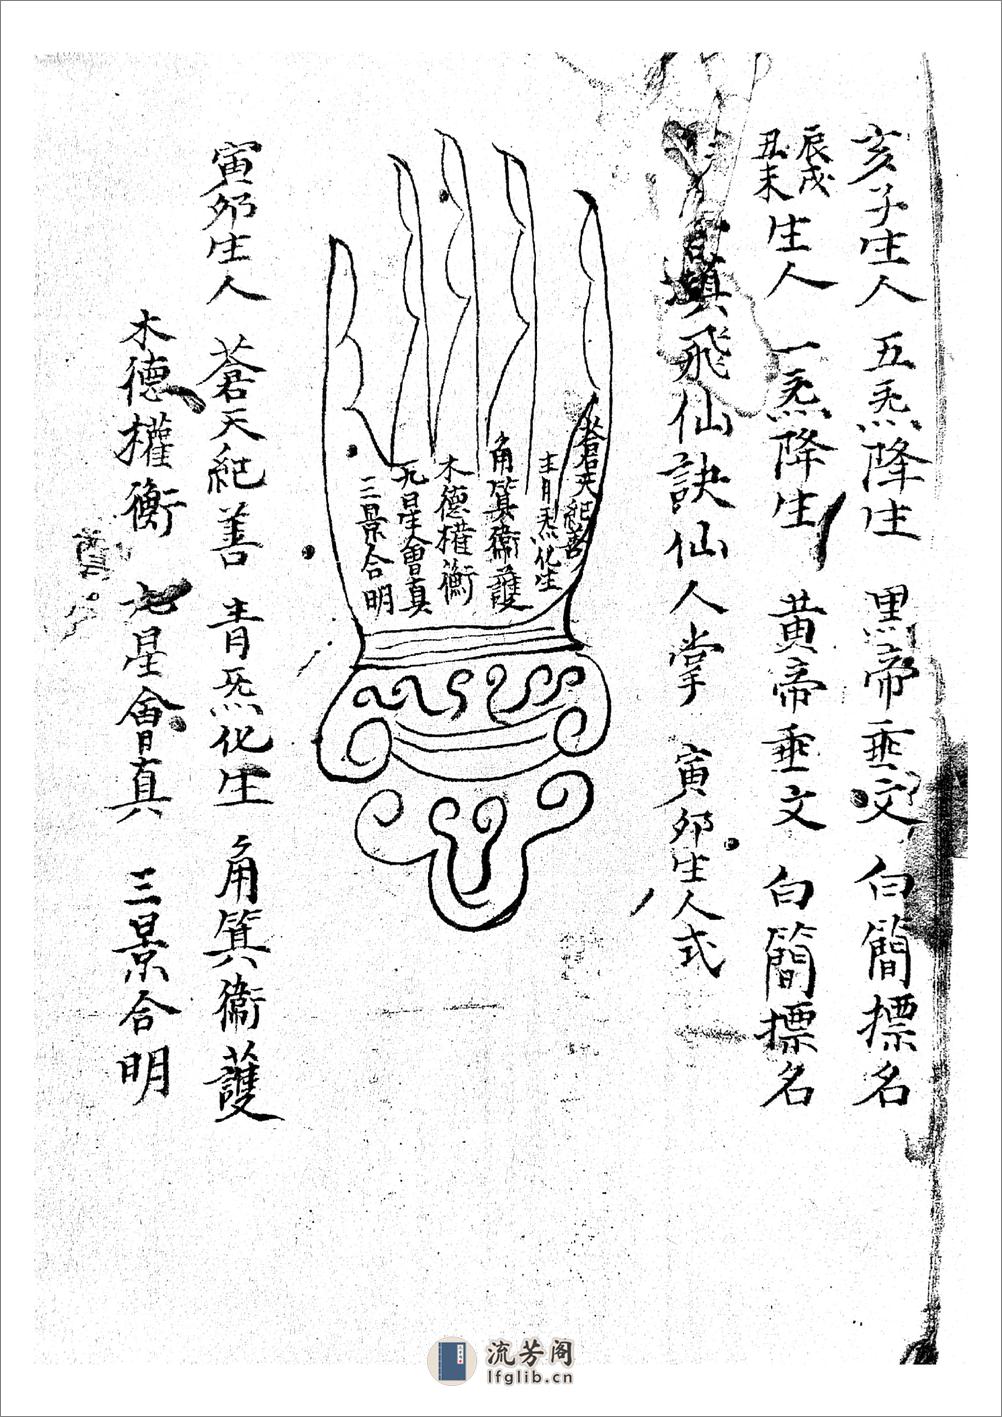 亥子生人 五炁降生 黑帝垂文 白簡摽名
辰戌丑未生人 一炁降生 黃帝垂文 白簡摽名
填飛仙訣仙人掌 寅夘生人式
蒼天紀善
青炁化生
角箕衛護
木德權衡
九星會真
三景合明
寅夘生人 蒼天紀善 青炁化生 角箕衛護
木德權衡 九星會真 三景合明
流芳阁
lfglib.cn